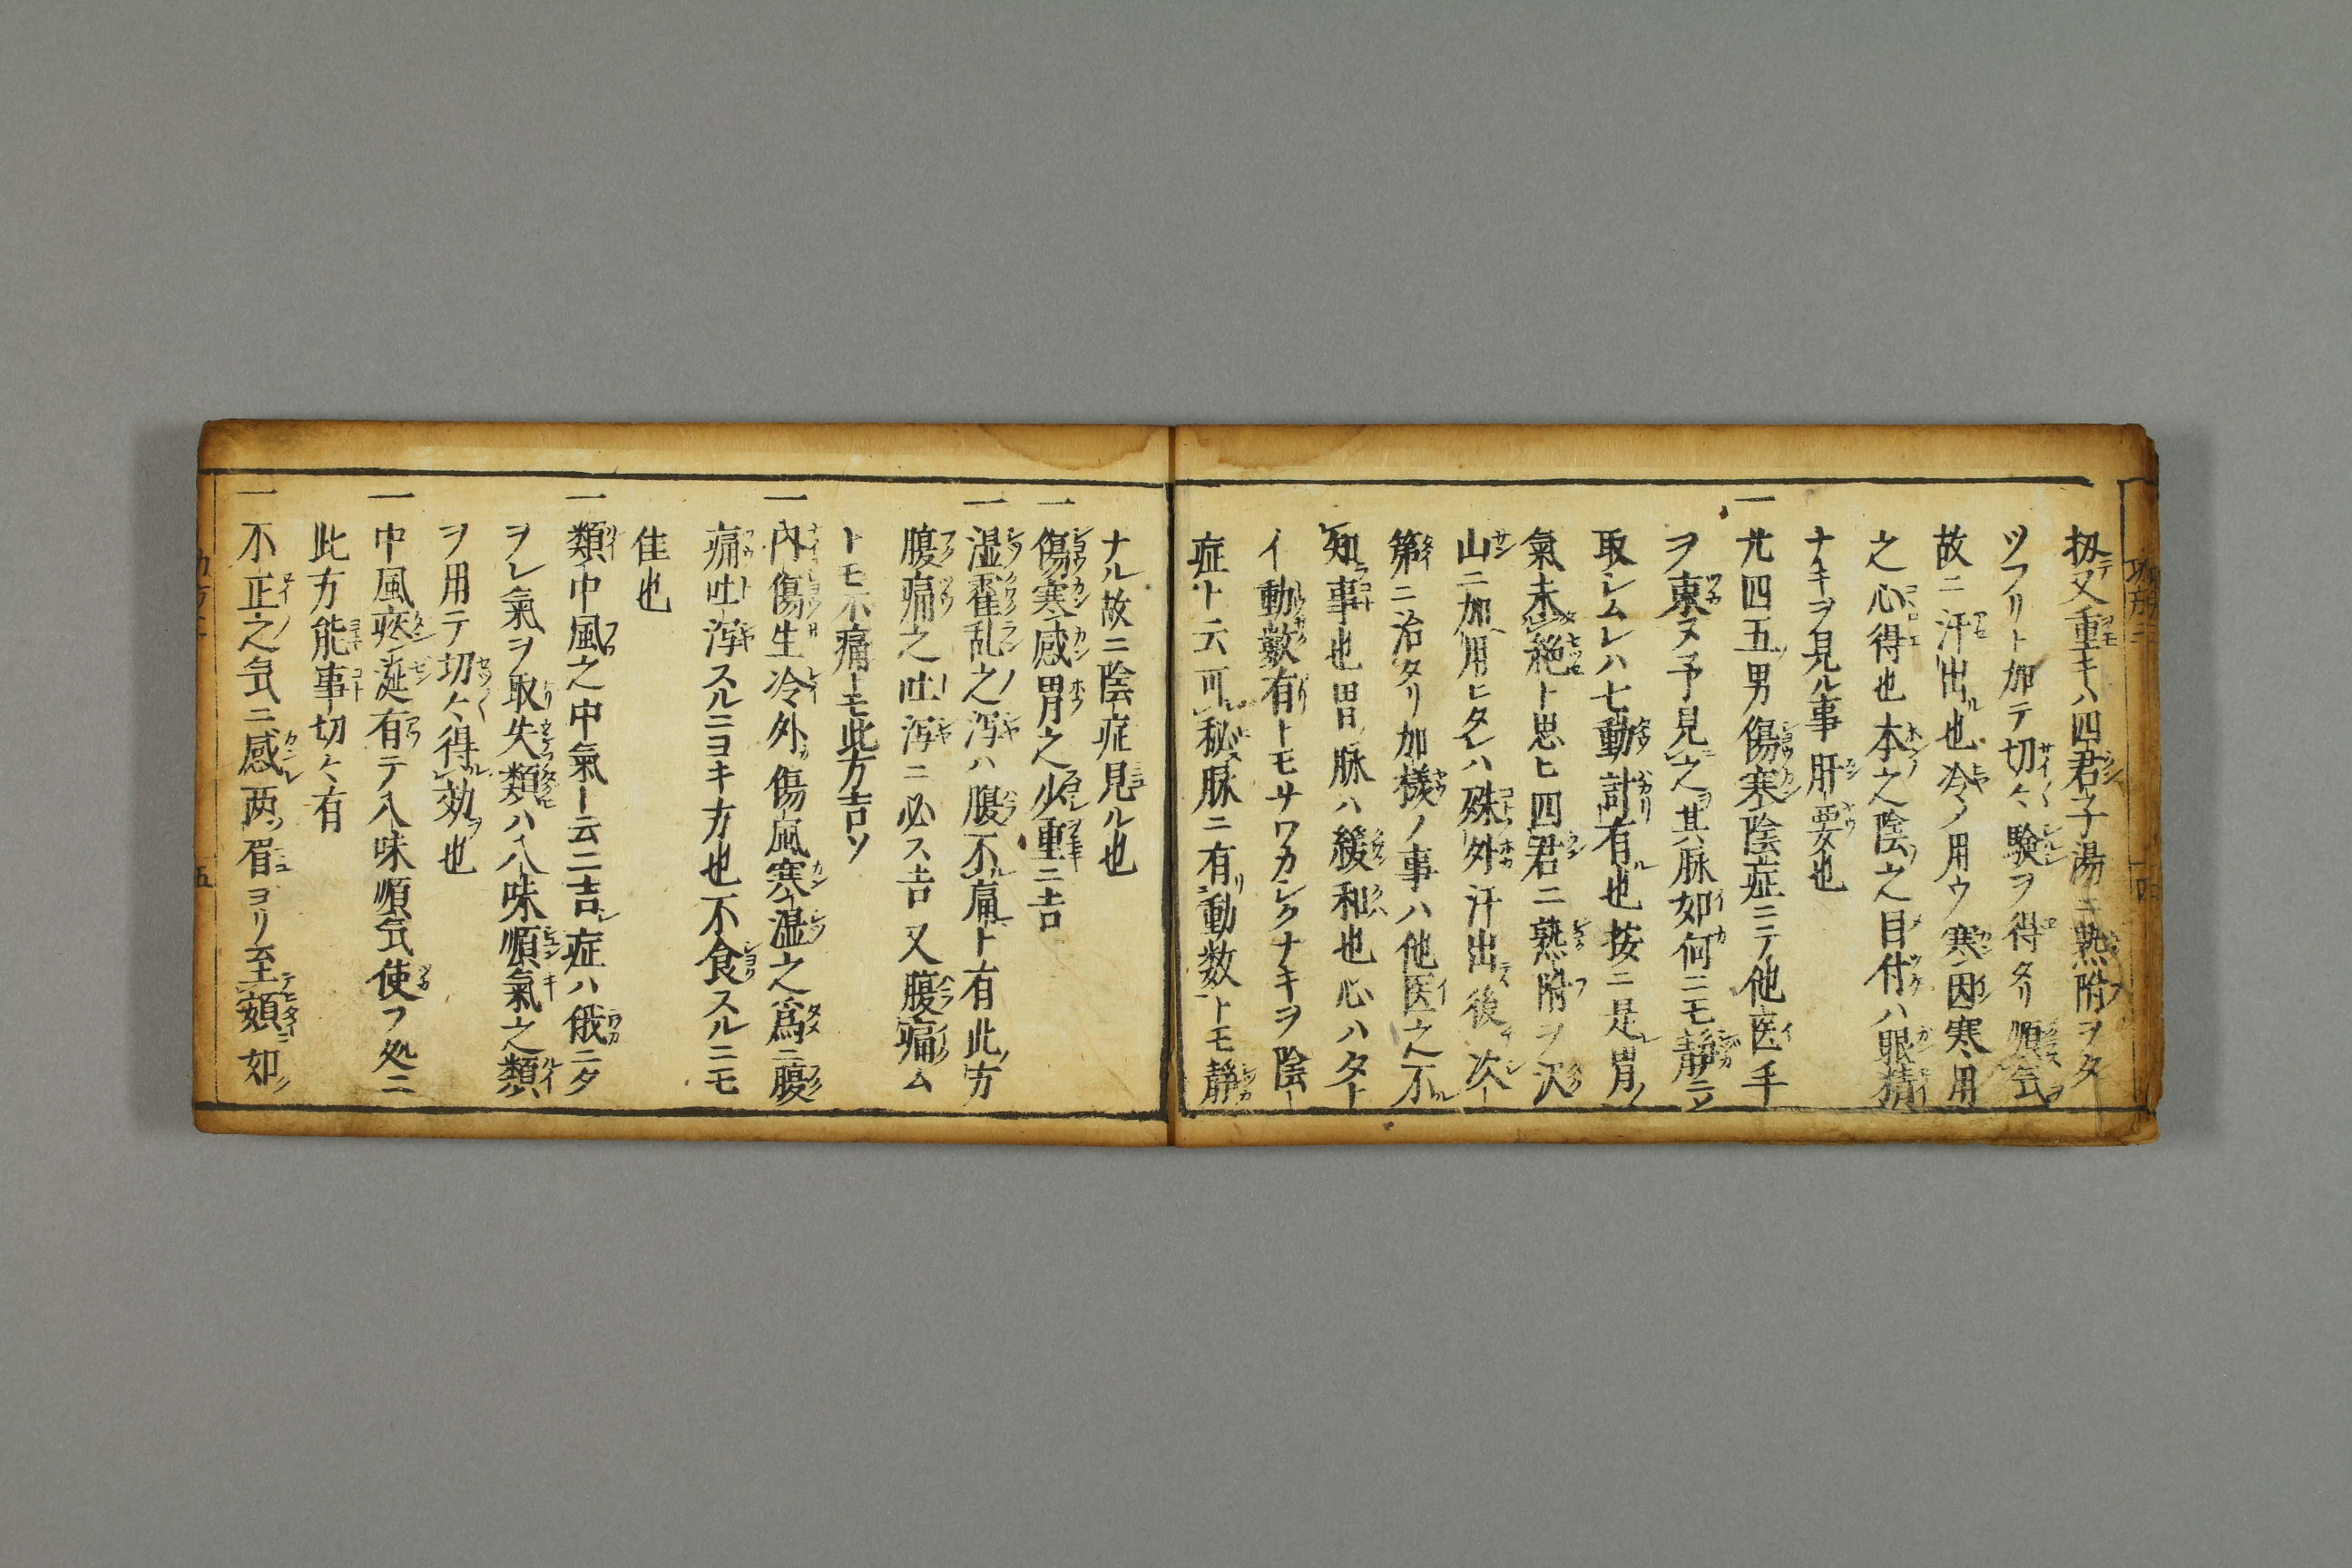 扨又重キハ四君子湯ニ熟附ヲタ
ツフリト加テ切々験ヲ得タリ順気
故ニ汗出ル也冷ノ用ウ寒因寒用
之心得也本之陰之目付ハ眼精
ナキヲ見ル事肝要也
一 廿四五男傷寒陰症ニテ他医手
ヲ束ヌ予見之其脉如何ニモ静ニシ
取レムレハ七動計有也按ニ是胃ノ
氣未絶ト思ヒ四君ニ熟附ヲ沢
山ニ加用ヒタレハ殊外汗出後次
第ニ治タリ加様ノ事ハ他医之不
知事也胃脉ハ緩和也心ハタト
イ動数有トモサワカシクナキヲ陰
症ト云可秘脉ニ有動数トモ静
ナル故ニ陰症見ル也
一 傷寒感冒之少重ニ吉
一 湿霍乱之瀉ハ腹不痛ト有此方
腹痛之吐瀉ニ必ス吉又腹痛ム
トモ不痛トモ此方吉ソ
一 内傷生冷外傷風寒湿之為ニ腹
痛吐瀉スルニヨキ方也不食スルニモ
佳也
一 類中風之中氣ト云ニ吉症ハ俄ニタ
ヲレ氣ヲ取失類ハ八味順氣之類
ヲ用テ切々得効也
一 中風痰涎有テ八味順気使フ処ニ
此方能事切々有
一 不正之気ニ感両眉ヨリ至額如
五